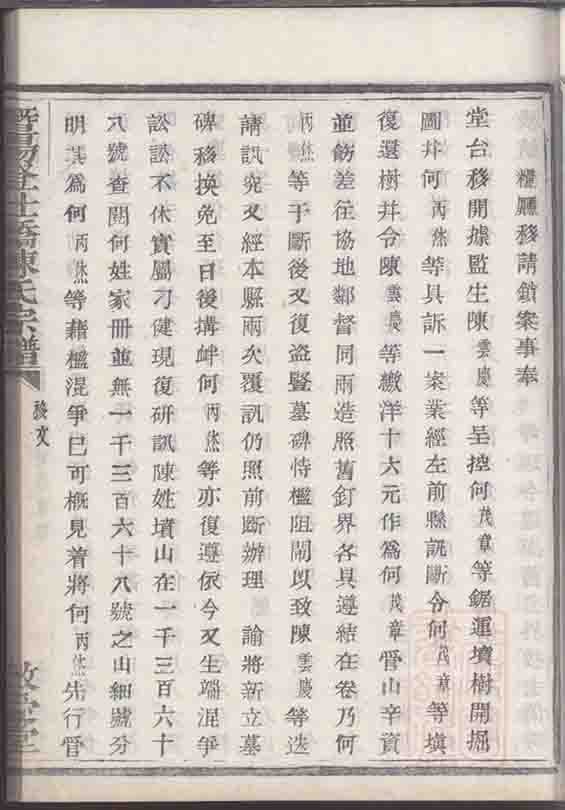 糧廳移請鎖案事奉
堂台移開據監生陳雲慶等呈控何茂章等鋸運墳樹開掘
圖井何丙烋等具訴一案業經左前縣訊斷令何茂章等塡
復還樹井令陳雲慶等繳洋十六元作爲何茂章管山辛資
並飭差往協地鄰督同兩造照舊釘界各具遵結在卷乃何
丙烋等于斷後又復盜豎墓碑恃檻阻鬧以致陳雲慶等迭
請訊究又經本縣兩次覆訊仍照前斷辦理 諭將新立墓
碑移換免至日後搆衅何丙烋等亦復遵依今又生端混爭
訟訟不休實屬刁健現復研訊陳姓墳山在一千三百六十
八號查閱何姓家冊並無一千三百六十八號之山細號分
明其爲何丙烋等藉檻混爭已可概見着將何丙烋先行管
暨陽登仕橋陳氏宗譜
移文
敦睦堂